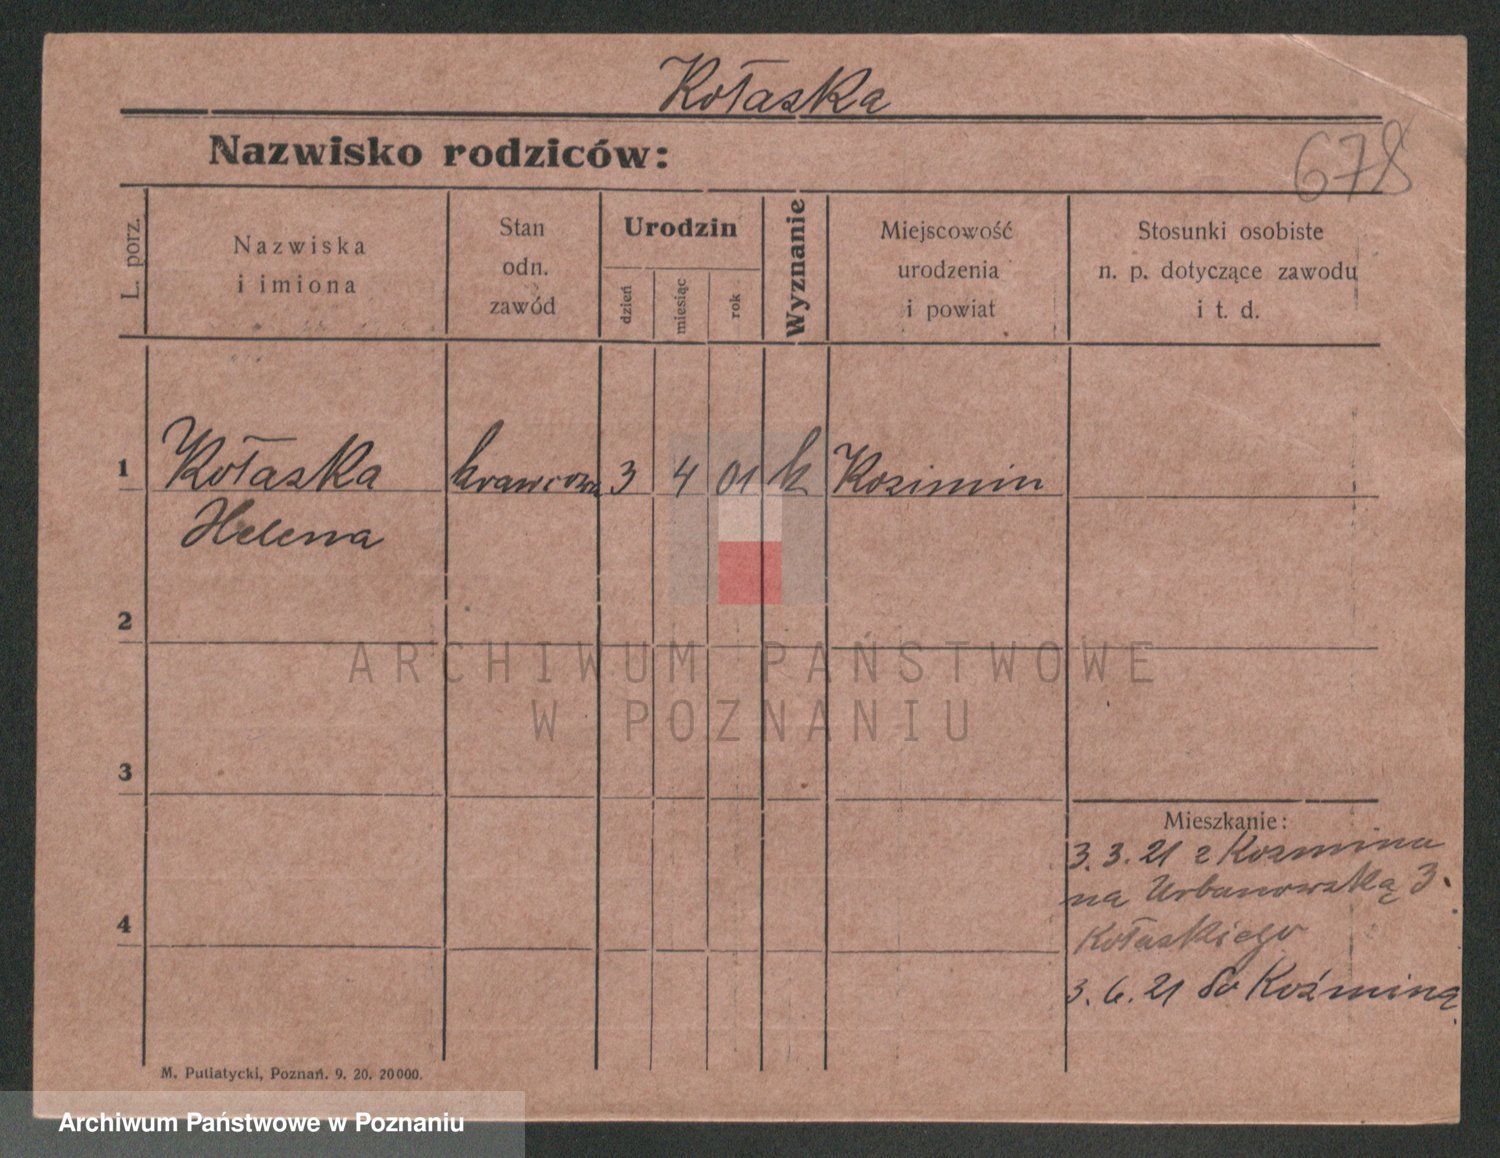 Kołaska
Nazwisko rodziców:
678
L. porz.
Nazwiska
i imiona
Stan
odn.
zawód
Urodzin
dzień
miesiąc
rok
Wyznanie
Miejscowość
urodzenia
i powiat
Stosunki osobiste
n. p. dotyczące zawodu
i t. d.
1
Kołaska krawcowa 3 4 01 k Kozimin
Helena
2
ARCHIWUM PAŃSTWOWE
W POZNANIU
3
Mieszkanie:
3.3.21 z Kozmina
na Urbanowską 3.
4
Kołaskiego
3.6.21 do Koźmina
M. Putiatycki, Poznań. 9. 20. 20000.
Archiwum Państwowe w Poznaniu